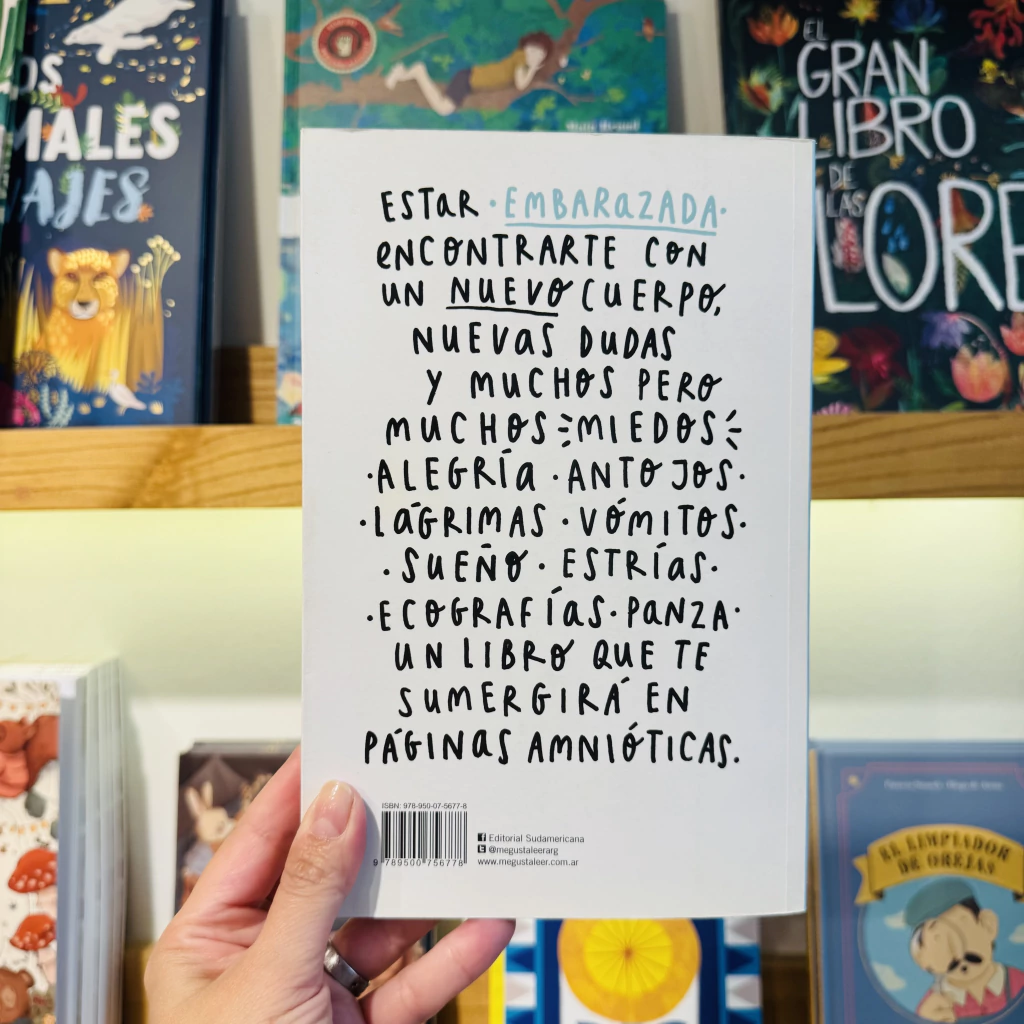 ESTAR · EMBARAZADA·
ENCONTRARTE CON
UN NUEVO CUERPO,
NUEVAS DUDAS
Y MUCHOS PERO
MUCHOS MIEDOS
·ALEGRÍA · ANTOJOS·
·LÁGRIMAS · VÓMITOS·
· SUEÑO · ESTRÍAS·
·ECOGRAFÍAS· PANZA·
UN LIBRO QUE TE
SUMERGIRÁ EN
PÁGINAS AMNIÓTICAS.
ISBN: 978-950-07-5677-8
9 789500 756778
Editorial Sudamericana
@megustaleerarg
www.megustaleer.com.ar
EL
GRAN
LIBRO
DE
LAS
LORE
OS
MALES
AJES
EL LIMPIADOR
DE OREJAS